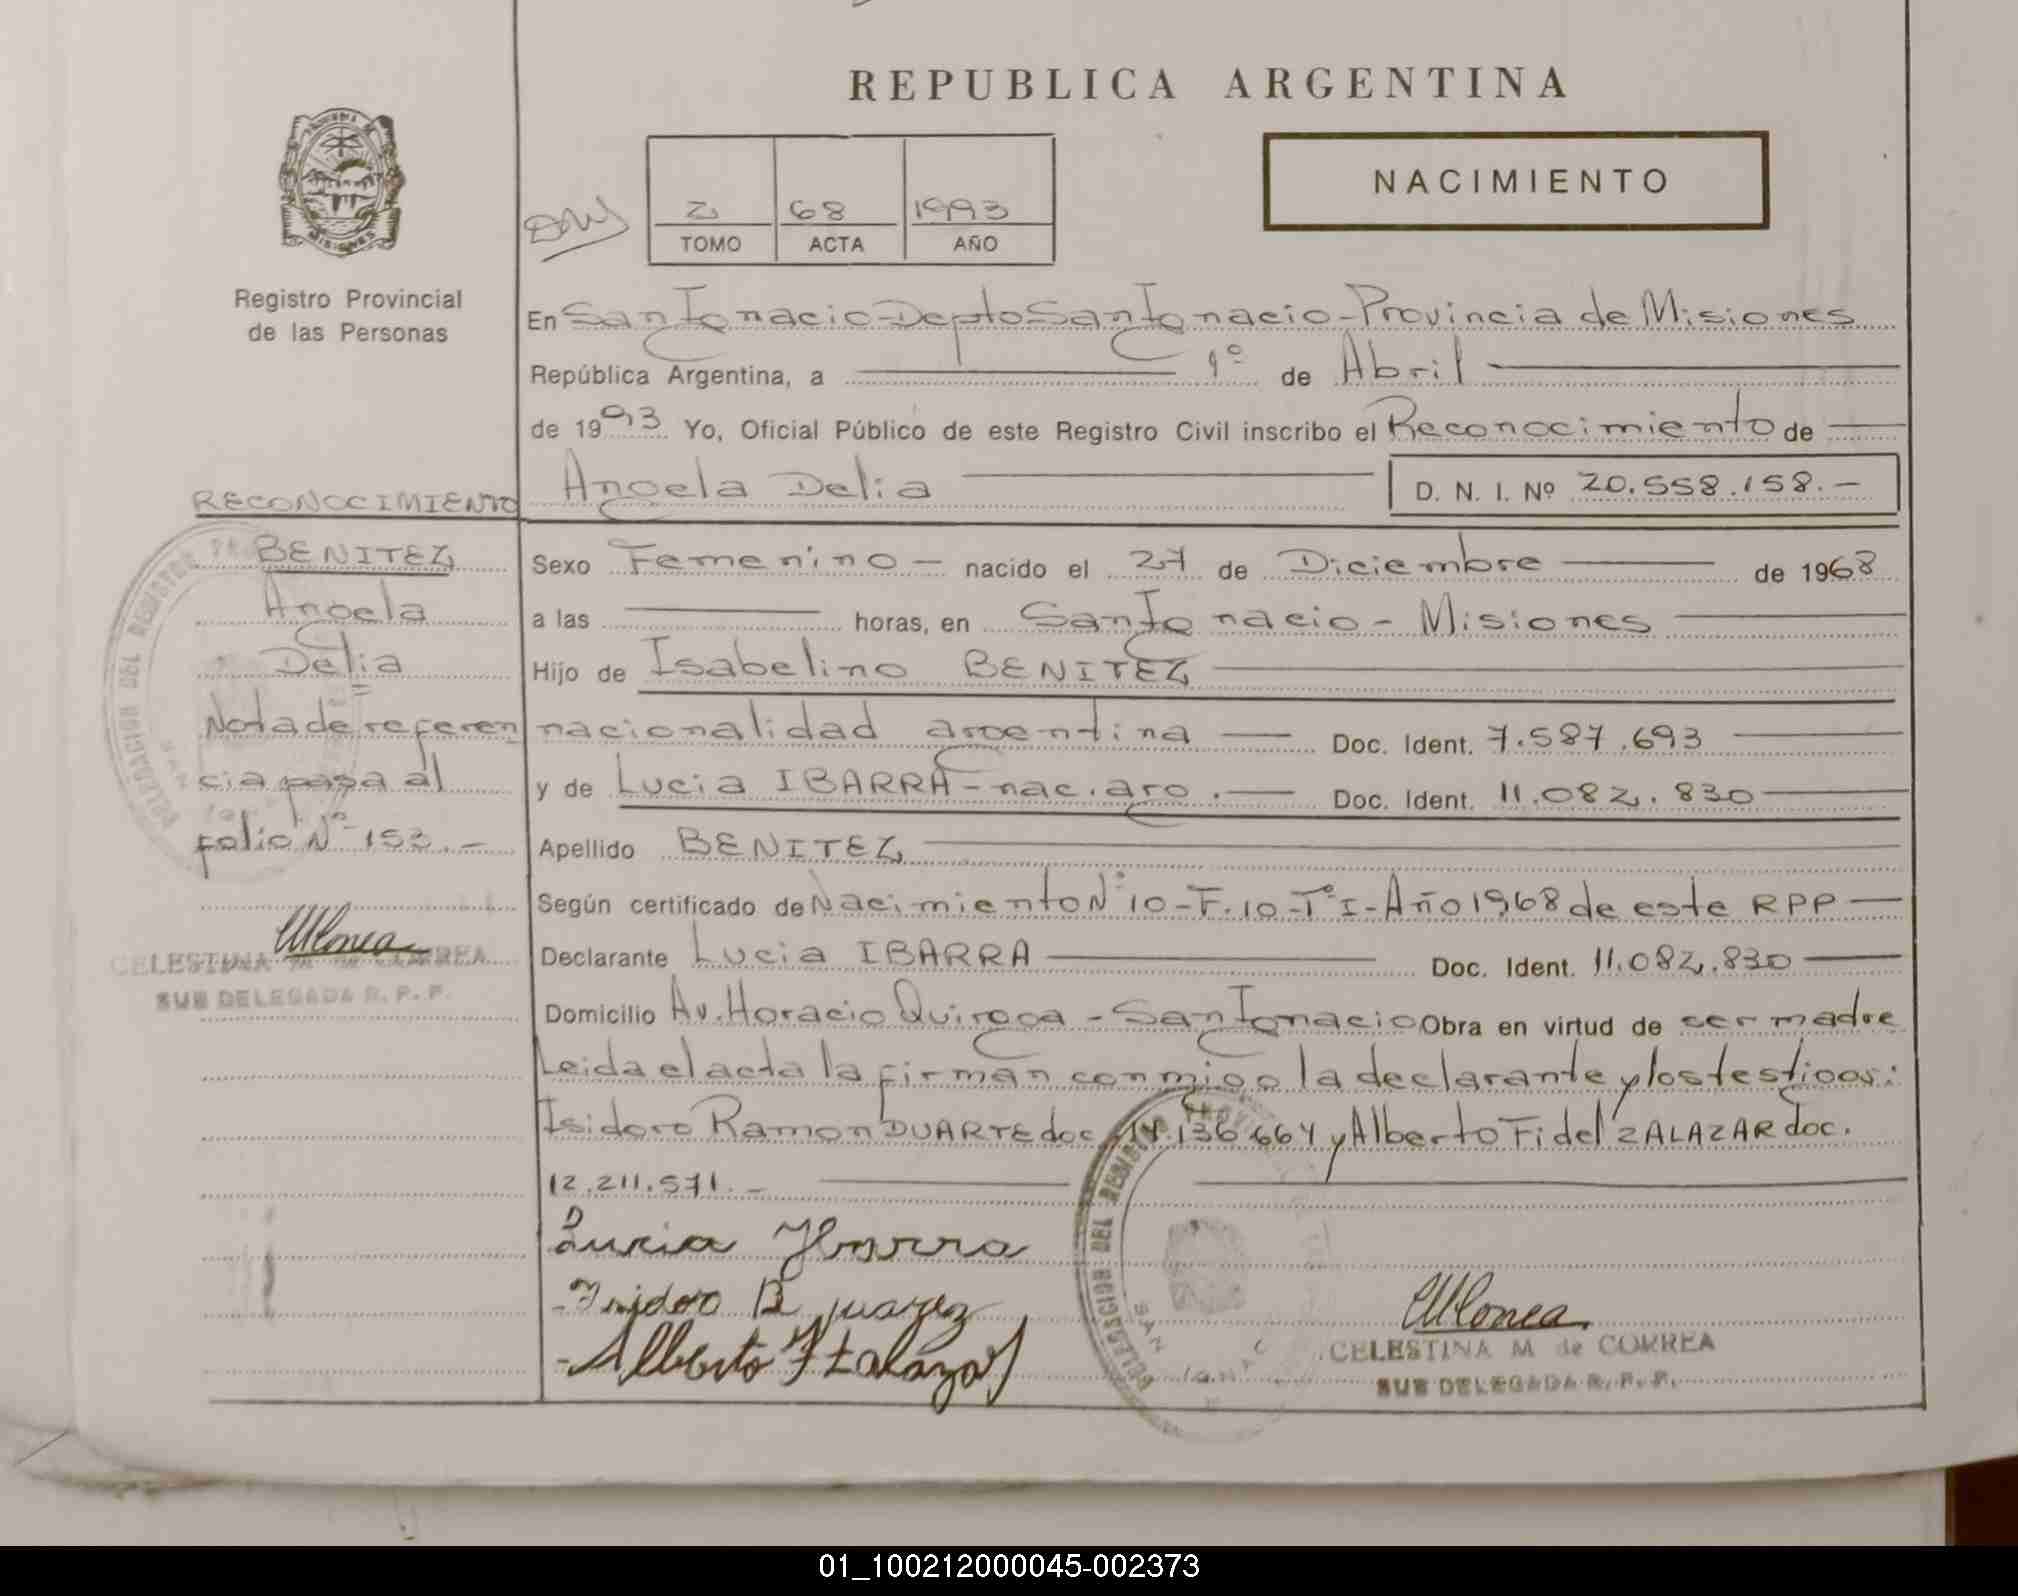 REPUBLICA ARGENTINA
NACIMIENTO
2 68 1993
TOMO ACTA AÑO
PROVINCIA DE
MISIONES
Registro Provincial
de las Personas
En San Ignacio-Depto San Ignacio-Provincia de Misiones
República Argentina, a 1º de Abril
de 1993 Yo, Oficial Público de este Registro Civil inscribo el Reconocimiento de
Angela Delia D. N. I. Nº 20.558.158.-
RECONOCIMIENTO
BENITEZ
Angela
Delia
Nota de referen
cia pasa al
folio Nº 153.-
CELESTINA M de CORREA
SUB DELEGADA R. P. P.
Sexo Femenino - nacido el 27 de Diciembre de 1968
a las horas, en San Ignacio - Misiones
Hijo de Isabelino BENITEZ
nacionalidad argentina Doc. Ident. 7.587.693
y de Lucia IBARRA-nac.arg.- Doc. Ident. 11.082.830
Apellido BENITEZ
Según certificado de Nacimiento Nº 10-F.10-Tº I-Año 1968 de este RPP
Declarante Lucia IBARRA Doc. Ident. 11.082.830
Domicilio Av. Horacio Quiroga - San Ignacio Obra en virtud de ser madre
Leida el acta la firman conmigo la declarante y los testigos:
Isidoro Ramon DUARTE doc. 14.136.664 y Alberto Fidel ZALAZAR doc.
12.211.571.-
Lucia Ybarra
Isidoro R juarez
Alberto F Zalazar
DELEGACION DEL REGISTRO PROV
SAN IGNAC
CELESTINA M de CORREA
SUB DELEGADA R. P. P.
01_100212000045-002373